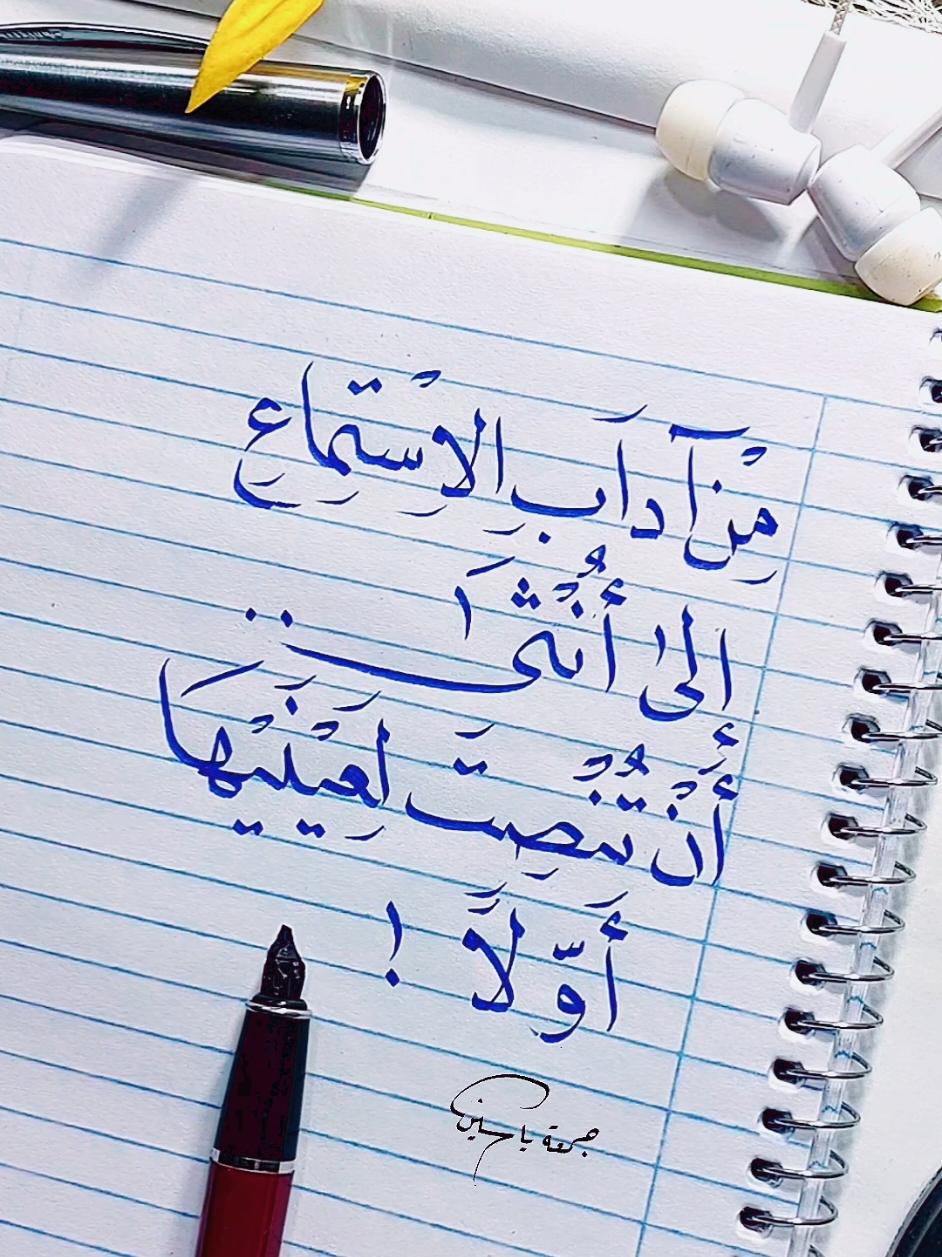 مِنْ آدابِ الاِسْتِماعِ
إِلىٰ أُنْثَىٰ ..
أَنْ تُنْصِتَ لِعَيْنَيْهَا
أَوَّلاً !
جمعة ياسين